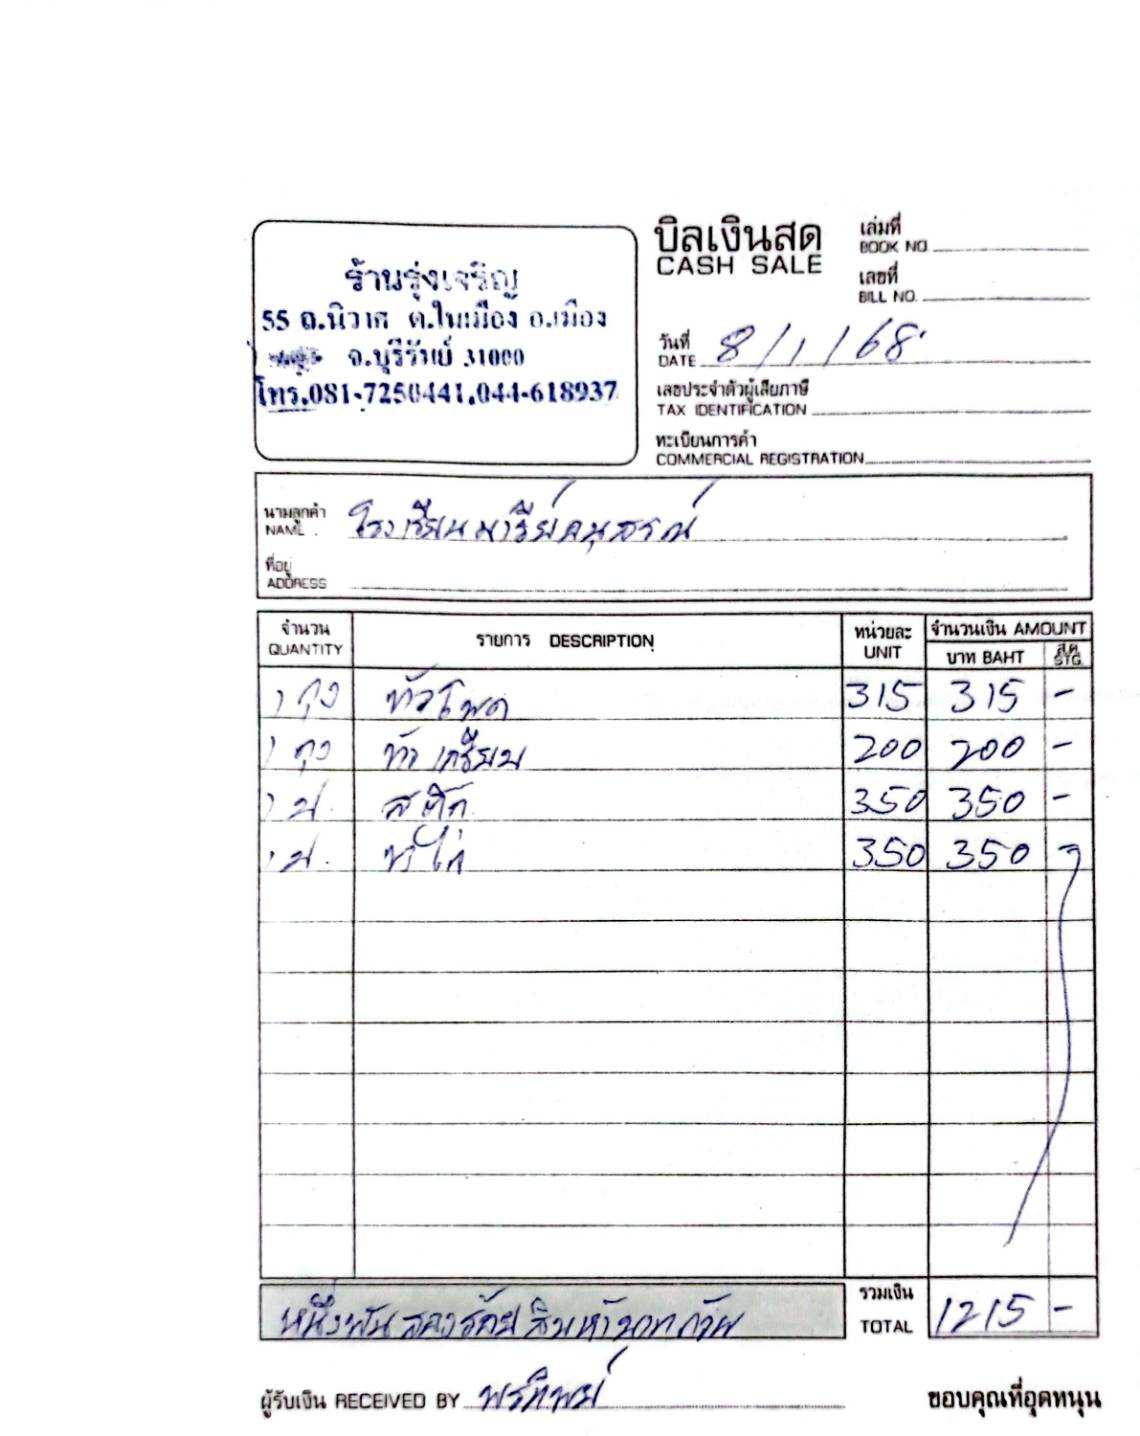 ร้านรุ่งเจริญ
55 ถ.นิวาศ ต.ในเมือง อ.เมือง
จ.บุรีรัมย์ 31000
โทร.081-7250441,044-618937
บิลเงินสด
CASH SALE
เล่มที่
BOOK NO.
เลขที่
BILL NO.
วันที่
DATE 8/1/68
เลขประจำตัวผู้เสียภาษี
TAX IDENTIFICATION
ทะเบียนการค้า
COMMERCIAL REGISTRATION
นามลูกค้า
NAME โรงเรียนมารีย์อนุสรณ์
ที่อยู่
ADDRESS
จำนวน QUANTITY รายการ DESCRIPTION หน่วยละ UNIT จำนวนเงิน AMOUNT
บาท BAHT ส.ต. STG.
1 ถุง 315 315 -
1 ถุง 200 200 -
1 ป. สติ๊ก 350 350 -
1 ป. 350 350 -
หนึ่งพันสองร้อยสิบห้าบาทถ้วน รวมเงิน TOTAL 1215 -
ผู้รับเงิน RECEIVED BY พรทิพย์ ขอบคุณที่อุดหนุน